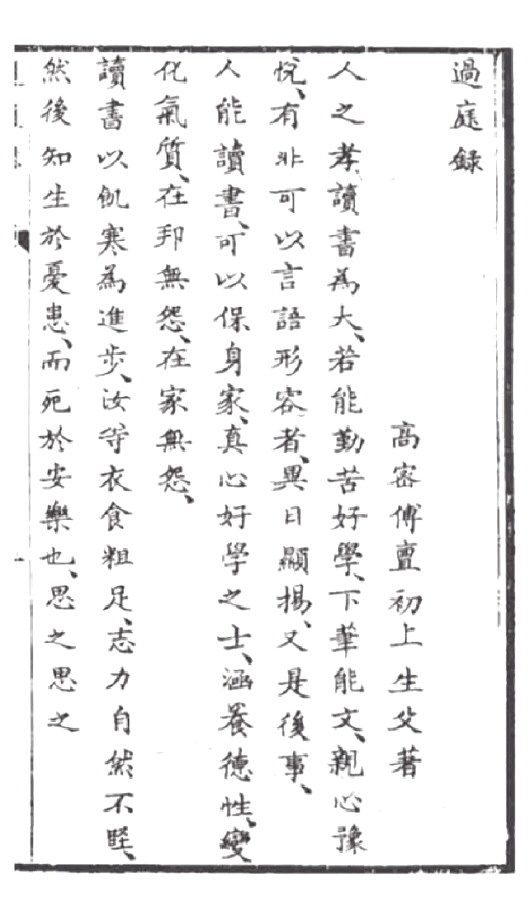 過庭録
高密傅亶初上生父著
人之孝讀書為大、若能勤苦好學、下筆能文、親心豫
悅、有非可以言語形容者、異日顯揚、又是後事、
人能讀書、可以保身家、真心好學之士、涵養德性、變
化氣质、在邦無怨、在家無怨、
讀書以飢寒為進步、汝等衣食粗足、志力自然不堅、
然後知生於憂患、而死於安樂也、思之思之